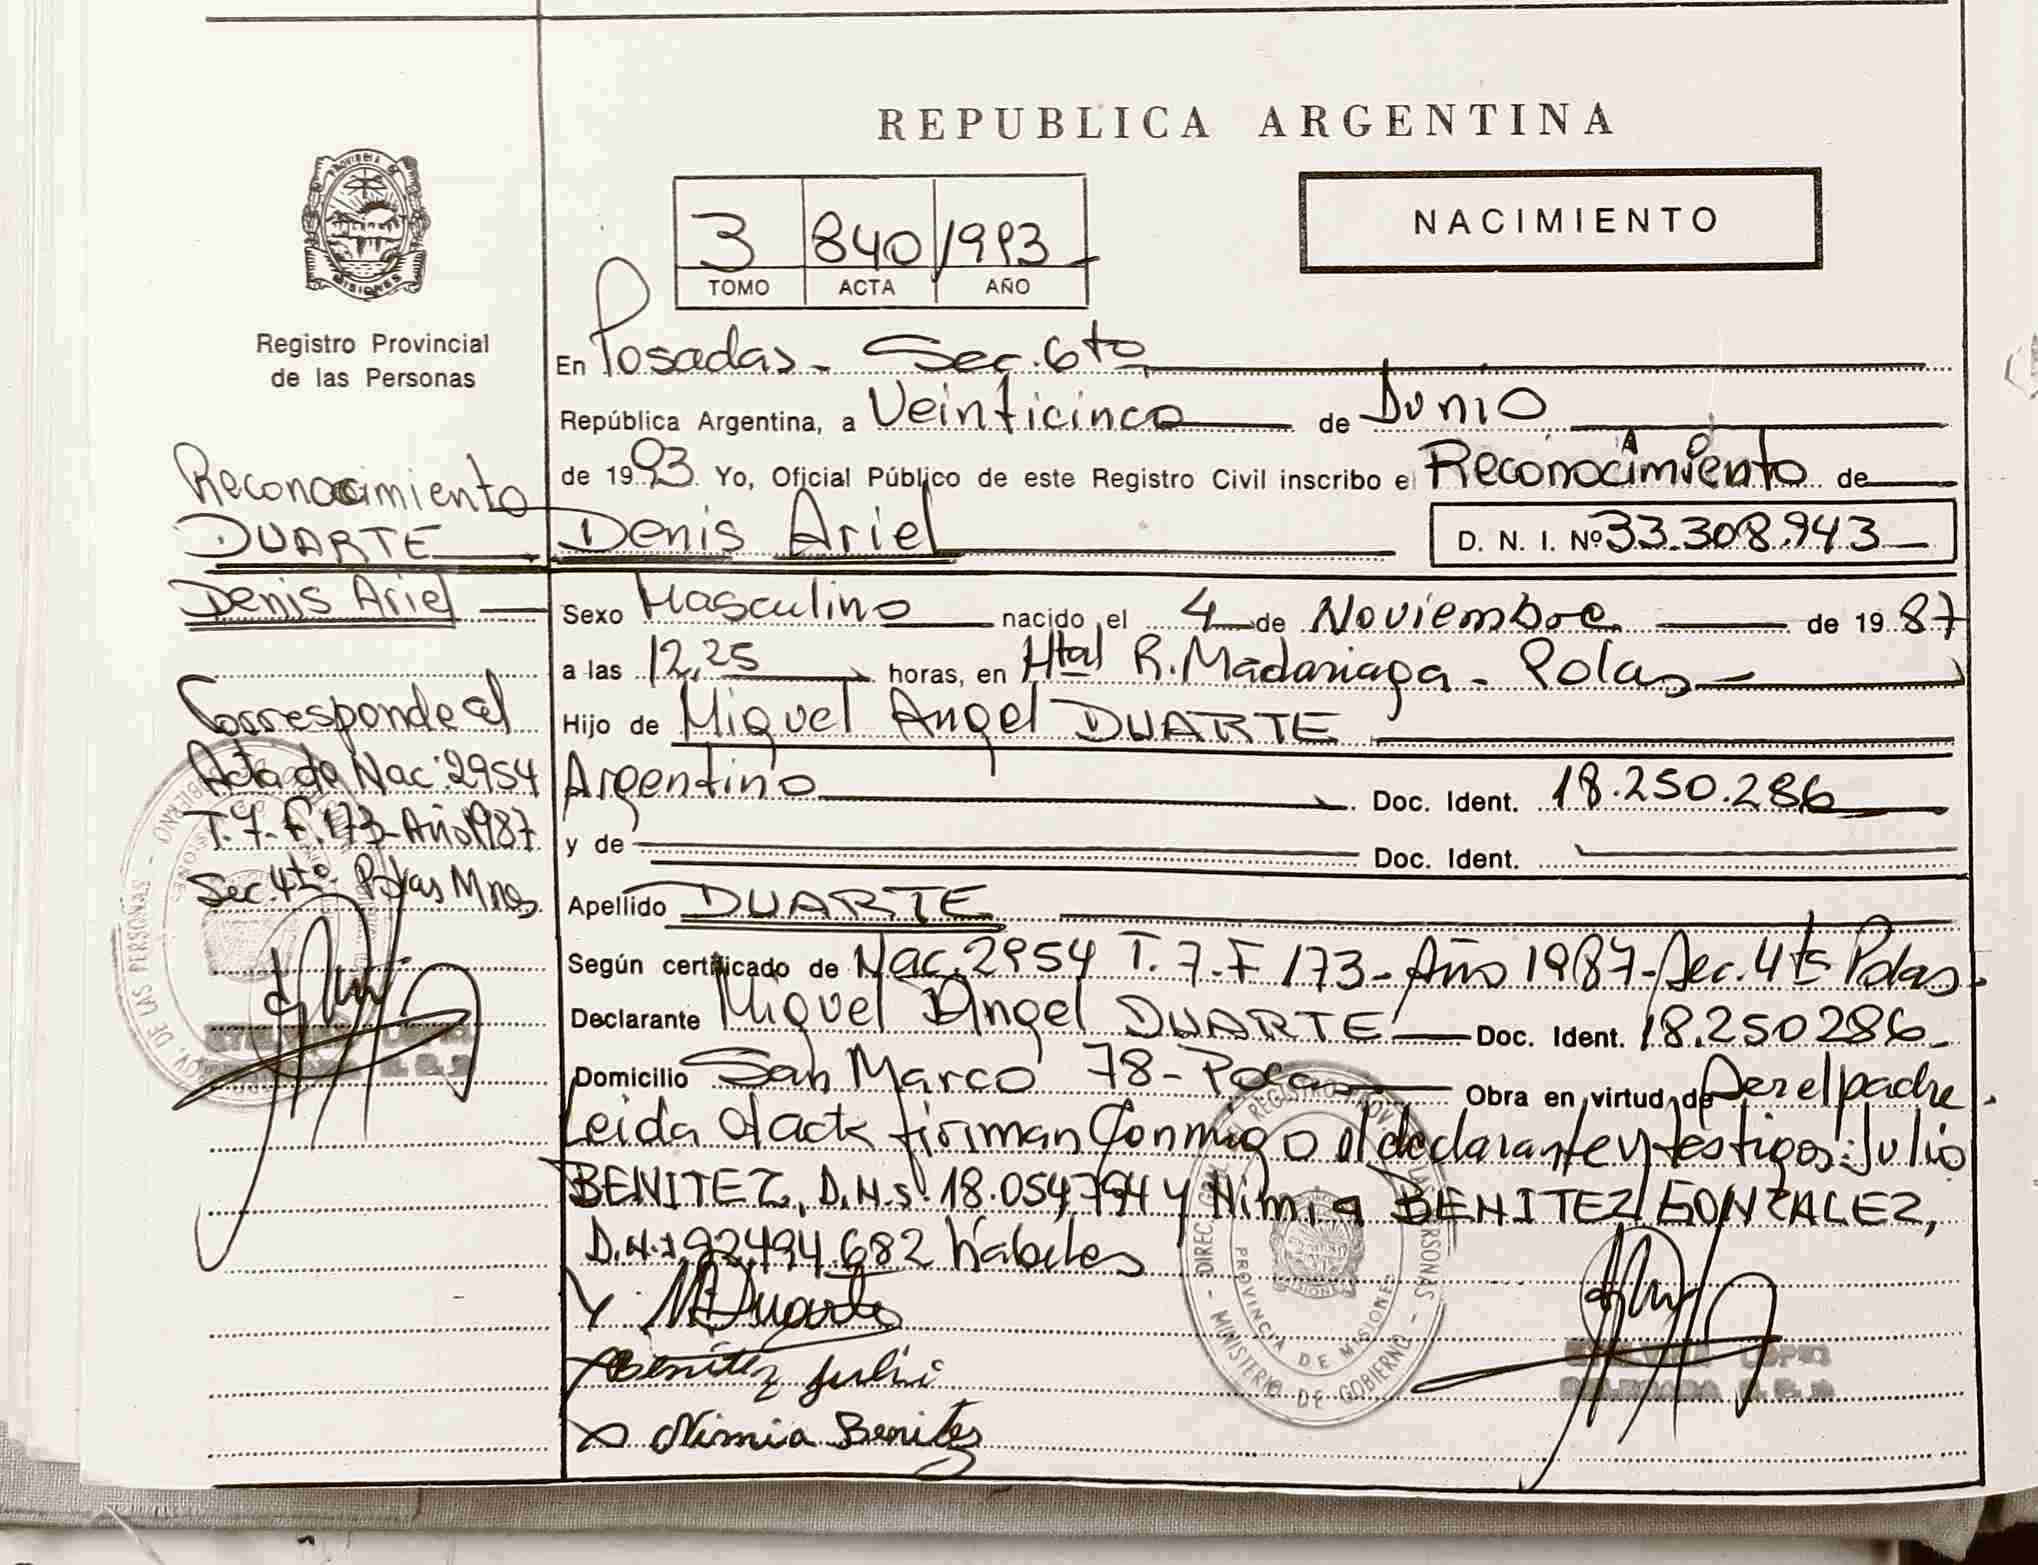 REPUBLICA ARGENTINA
NACIMIENTO
3 840 1993
TOMO ACTA AÑO
PROVINCIA DE MISIONES
Registro Provincial
de las Personas
En Posadas - Sec. 6to
República Argentina, a Veinticinco de Junio
de 1993. Yo, Oficial Público de este Registro Civil inscribo el Reconocimiento de
Denis Ariel
D. N. I. Nº 33.308.943
Sexo Masculino nacido el 4 de Noviembre de 1987
a las 12,25 horas, en Htal R. Madariaga - Pdas
Hijo de Miguel Angel DUARTE
Argentino Doc. Ident. 18.250.286
y de Doc. Ident.
Apellido DUARTE
Según certificado de Nac. 2954 T. 7 - F 173 - Año 1987 - Sec. 4ta Pdas.
Declarante Miguel Angel DUARTE Doc. Ident. 18.250286
Domicilio San Marco 78 - Pdas Obra en virtud de Ser el padre.
Leida el acta firman conmigo el declarante y testigos: Julio
BENITEZ, D.N.I. 18.054.794 y Nimia BENITEZ GONZALEZ,
D.N.I 92494.682 hábiles
M Duarte
Benitez Julio
Nimia Benitez
Reconocimiento
DUARTE
Denis Ariel
Corresponde al
Acta de Nac: 2954
T. 7 - F. 173 - Año 1987
Sec. 4ta - Pdas Mnes
DIREC. GRAL. DEL REGISTRO PROV. DE LAS PERSONAS - MINISTERIO DE GOBIERNO -
PROVINCIA DE MISIONES
LOPEZ
DELEGADA R.P.P.